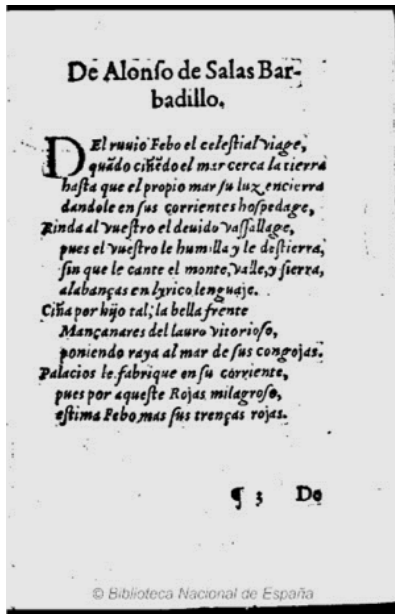 De Alonſo de Salas Bar-
badillo.
DEl ruuio Febo el celeſtial viage,
quãdo ciñẽdo el mar cerca la tierra
haſta que el propio mar ſu luz encierra
dandole en ſus corrientes hoſpedage,
Rinda al vueſtro el deuido vaſſallage,
pues el vueſtro le humilla y le deſtierra,
ſin que le cante el monte, valle, y ſierra,
alabanças en lyrico lenguaje.
Ciña por hijo tal; la bella frente
Mançanares del lauro vitorioſo,
poniendo raya al mar de ſus congojas.
Palacios le fabrique en ſu corriente,
pues por aqueſte Rojas milagroſo,
eſtima Febo, mas ſus trenças rojas.
¶ 3 De
© Biblioteca Nacional de España